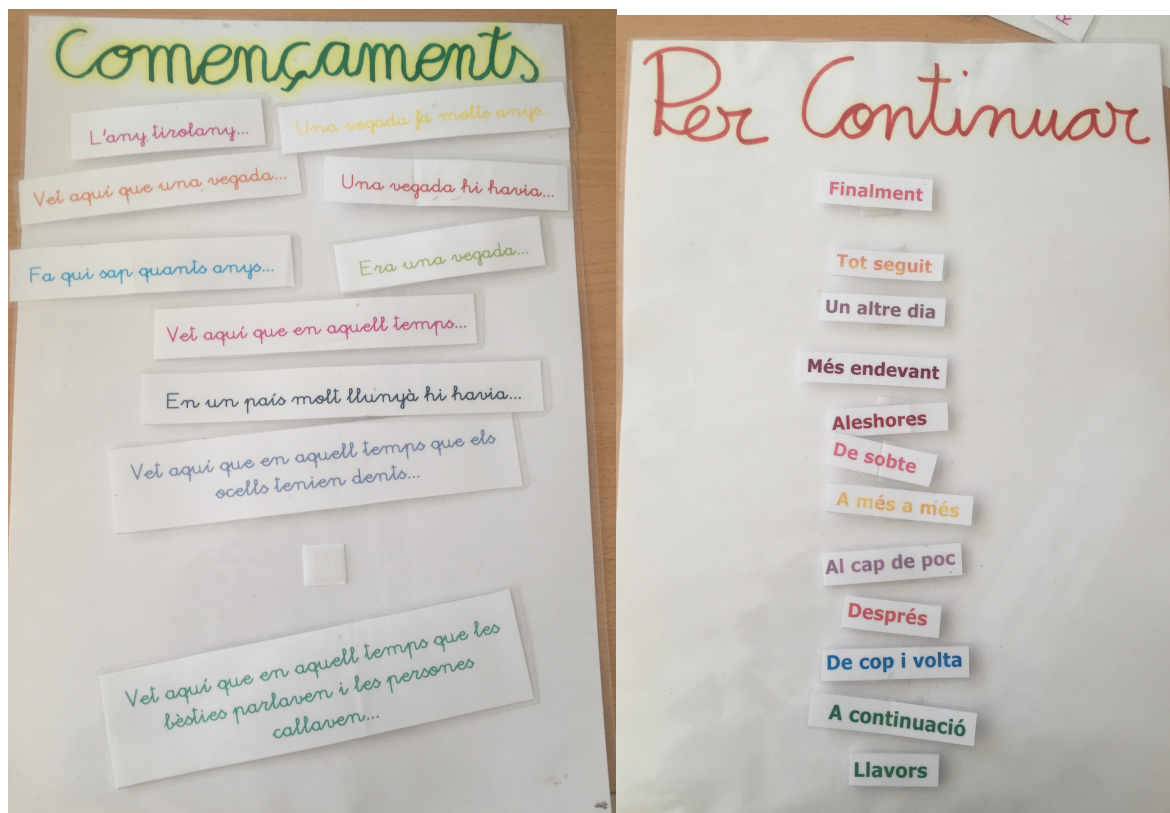 Començaments
L'any tirolany...
Una vegada fa molts anys...
Vet aquí que una vegada...
Una vegada hi havia...
Fa qui sap quants anys...
Era una vegada...
Vet aquí que en aquell temps...
En un país molt llunyà hi havia...
Vet aquí que en aquell temps que els
ocells tenien dents...
Vet aquí que en aquell temps que les
bèsties parlaven i les persones
callaven...
Per Continuar
Finalment
Tot seguit
Un altre dia
Més endevant
Aleshores
De sobte
A més a més
Al cap de poc
Després
De cop i volta
A continuació
Llavors